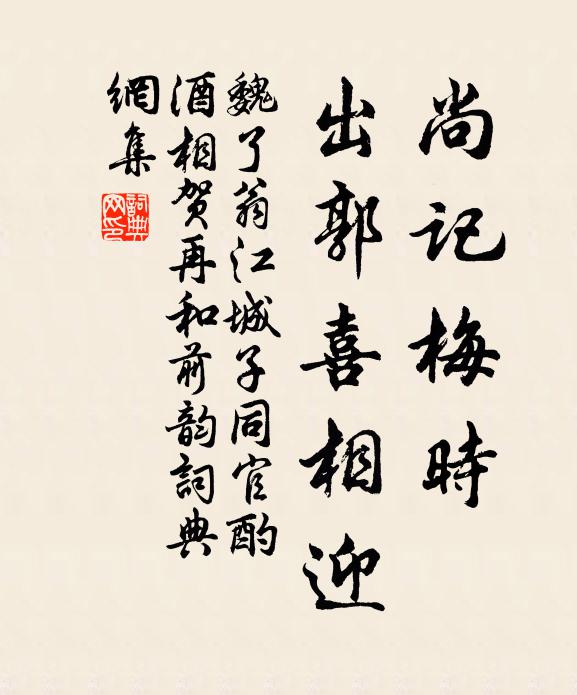 尚记梅時
出郭喜相迎
魏了翁江城子同官酌
酒相贺再和前韵詞典
網集
詞典
网印